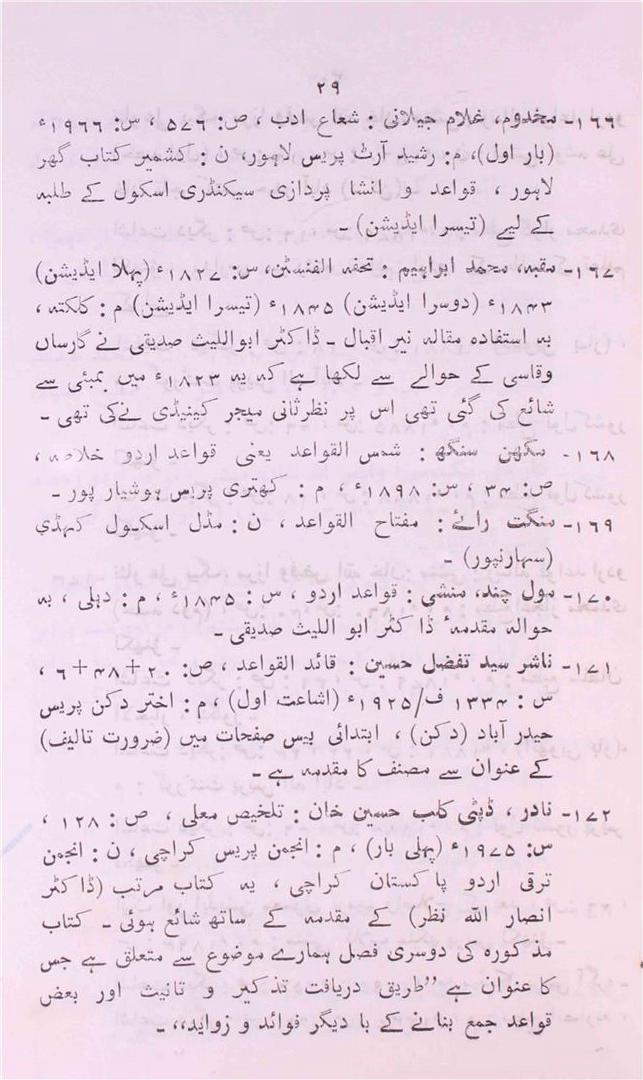 ۲۹
۱۶۶- مخدوم، غلام جیلانی : شعاع ادب ، ص: ۵۷۶ ، س: ۱۹۶۶ء
(بار اول)، م: رشید آرٹ پریس لاہور، ن : کشمیر کتاب گھر
لاہور ، قواعد و انشا پردازی سیکنڈری اسکول کے طلبہ
کے لیے (تیسرا ایڈیشن) ۔
۱۶۷- مقبہ، محمد ابراہیم : تحفہ الفنسٹن، س: ۱۸۲۷ء (پہلا ایڈیشن)
۱۸۴۳ء (دوسرا ایڈیشن) ۱۸۴۵ء (تیسرا ایڈیشن) م : کلکتہ ،
بہ استفادہ مقالہ نیر اقبال ۔ ڈاکٹر ابواللیث صدیقی نے گارساں
وقاسی کے حوالے سے لکھا ہے کہ یہ ۱۸۲۳ء میں بمبئی سے
شائع کی گئی تھی اس پر نظرثانی میجر کینیڈی نےکی تھی ۔
۱۶۸- مگھن سنگھ : شمس القواعد یعنی قواعد اردو خلاصہ ،
ص: ۳۴ ، س: ۱۸۹۸ء ، م : کھتری پریس ہوشیار پور ۔
۱۶۹- منگت رائے : مفتاح القواعد ، ن : مڈل اسکول کہڈی
(سہارنپور) ۔
۱۷۰- مول چند، منشی : قواعد اردو ، س : ۱۸۴۵ء ، م : دہلی ، بہ
حوالہ مقدمہٴ ڈاکٹر ابو اللیث صدیقی ۔
۱۷۱- ناشر سید تفضل حسین : قائد القواعد ، ص: ۲۰+۴۸+۶ ،
س : ۱۳۳۴ ف/۱۹۲۵ء (اشاعت اول) ، م : اختر دکن پریس
حیدر آباد (دکن) ، ابتدائی بیس صفحات میں (ضرورت تالیف)
کے عنوان سے مصنف کا مقدمہ ہے ۔
۱۷۲- نادر ، ڈپٹی کلب حسین خان : تلخیص معلی ، ص : ۱۲۸ ،
س: ۱۹۷۵ء (پہلی بار) ، م : انجمن پریس کراچی ، ن : انجمن
ترقی اردو پاکستان کراچی ، یہ کتاب مرتب (ڈاکٹر
انصار اللہ نظر) کے مقدمہ کے ساتھ شائع ہوئی ۔ کتاب
مذکورہ کی دوسری فصل ہمارے موضوع سے متعلق ہے جس
کا عنوان ہے ”طریق دریافت تذکیر و تانیث اور بعض
قواعد جمع بنانے کے با دیگر فوائد و زواید،، ۔